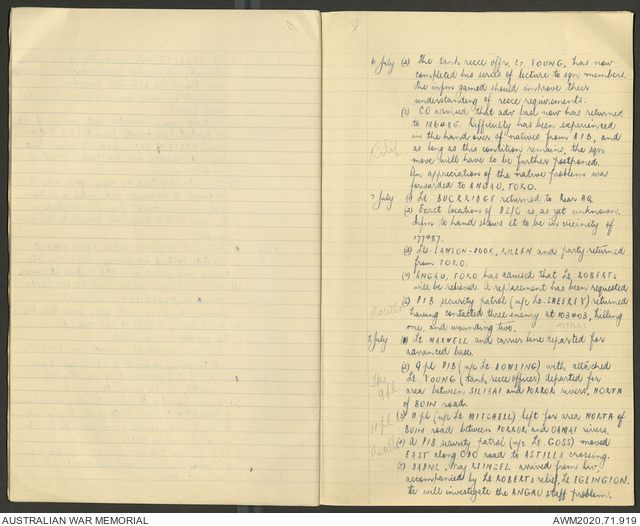 6 July (2) The tank recce offr, Lt YOUNG, has now
completed his series of lecture to sqn members.
The infm gained should improve their
understanding of recce requirements.
(3) CO advised that adv base now has returned
to 186486. Difficulty has been experienced
in the hand over of natives from PIB, and
as long as this condition remains, the sqn
move will have to be further postponed.
An appreciation of the native problem was
forwarded to ANGAU, TORO.
7 July (1) Lt BURRIDGE returned to Rear HQ.
(2) Exact location of DZ/G is as yet unknown.
Infm to hand shows it to be in vicinity of
177487.
(3) Lts LAWSON-DOOK, KILLEN and party returned
from TORO.
(4) ANGAU, TORO has advised that Lt ROBERTS
will be relieved. A replacement has been requested
(5) PIB security patrol (u/c Lt. SHEEKEY) returned
having contacted three enemy at 103403, killing
one, and wounding two.
8 July (1) Lt MAXWELL and carrier line departed for
advanced base.
(2) 9 pl PIB (u/c Lt DOWLING) with attached
Lt YOUNG (tank recce officer) departed for
area between SILIBAI and PORROR rivers, NORTH
of BUIN road.
(3) 11 pl (u/c Lt MITCHELL) left for area NORTH of
BUIN road between PORROR and OAMAI rivers.
(4) A PIB security patrol (u/c Lt. GOSS) moved
EAST along road to ASTILLS crossing.
(5) Maj arrived from Div,
accompanied by Lt ROBERTS relief, Lt EGLINGTON.
to will investigate the ANGAU staff problem.
AUSTRALIAN WAR MEMORIAL
AWM2020.71.919